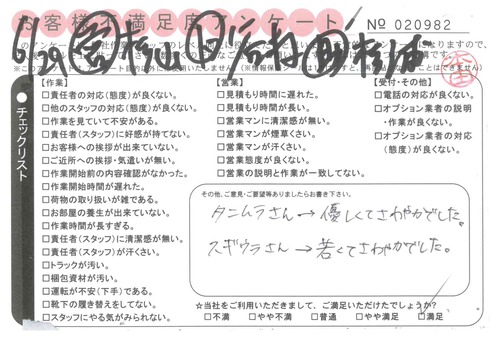 お客様不満足度アンケート
No 020982
6/29
チェックリスト
【作業】
□責任者の対応(態度)が良くない。
□他のスタッフの対応(態度)が良くない。
□作業を見ていて不安がある。
□責任者(スタッフ)に好感が持てない。
□お客様への挨拶が出来ていない。
□ご近所への挨拶・気遣いが無い。
□作業開始前の内容確認がなかった。
□作業開始時間が遅れた。
□荷物の取り扱いが雑である。
□お部屋の養生が出来ていない。
□作業時間が長すぎる。
□責任者(スタッフ)に清潔感が無い。
□責任者(スタッフ)が汗くさい。
□トラックが汚い。
□梱包資材が汚い。
□運転が不安(下手)である。
□靴下の履き替えをしてない。
□スタッフにやる気がみられない。
【営業】
□見積もり時間に遅れた。
□見積もり時間が長い。
□営業マンに清潔感が無い。
□営業マンが煙草くさい。
□営業マンが汗くさい。
□営業態度が良くない。
□営業の説明と作業が一致してない。
【受付・その他】
□電話の対応が良くない。
□オプション業者の説明
・作業が良くない。
□オプション業者の対応
(態度)が良くない。
その他、ご意見・ご要望等ありましたらお書き下さい。
タニムラさん→優しくてさわやかでした。
スギウラさん→若くてさわやかでした。
☆当社をご利用いただきまして、ご満足いただけたでしょうか?
□不満 □やや不満 □普通 □やや満足 □満足